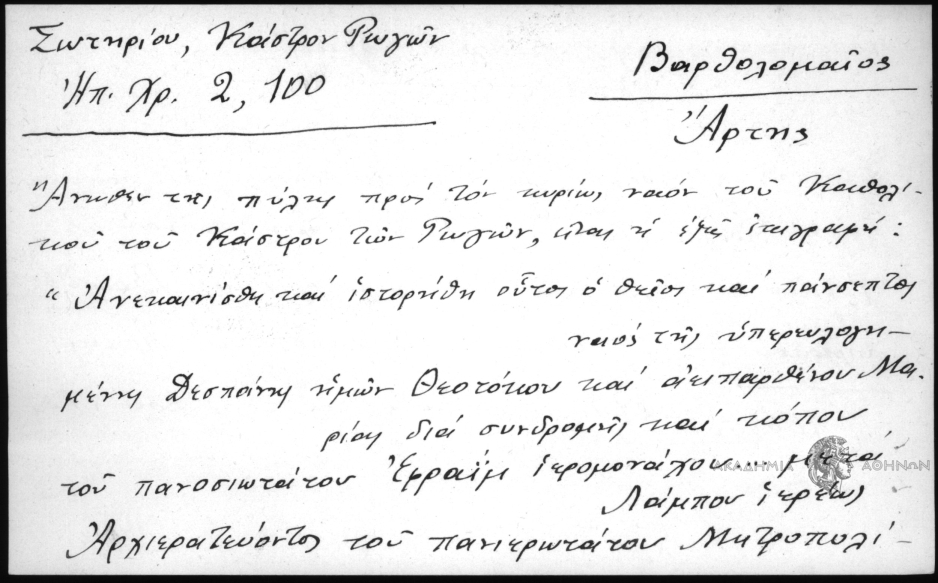 Σωτηρίου, Κάστρον Ρωγῶν
Ἠπ. Χρ. 2, 100
Βαρθολομαῖος
Ἄρτης
"Ἄνωθεν τῆς πύλης πρός τόν κυρίως ναόν τοῦ Καθολι-
κοῦ τοῦ Κάστρου τῶν Ρωγῶν, εἶναι ἡ ἑξῆς ἐπιγραφή:
"Ἀνεκαινίσθη καί ἱστορήθη οὗτος ὁ θεῖος καί πάνσεπτος
ναός τῆς ὑπερευλογη-
μένης Δεσποίνης ἡμῶν Θεοτόκου καί ἀειπαρθένου Μα-
ρίας διά συνδρομῆς καί κόπου
τοῦ πανοσιωτάτου Ἐφραίμ ἱερομονάχου... μετά
Λάμπου ἱερέως
Ἀρχιερατεύοντος τοῦ πανιερωτάτου Μητροπολί-
ΑΚΑΔΗΜΙΑ ΑΘΗΝΩΝ